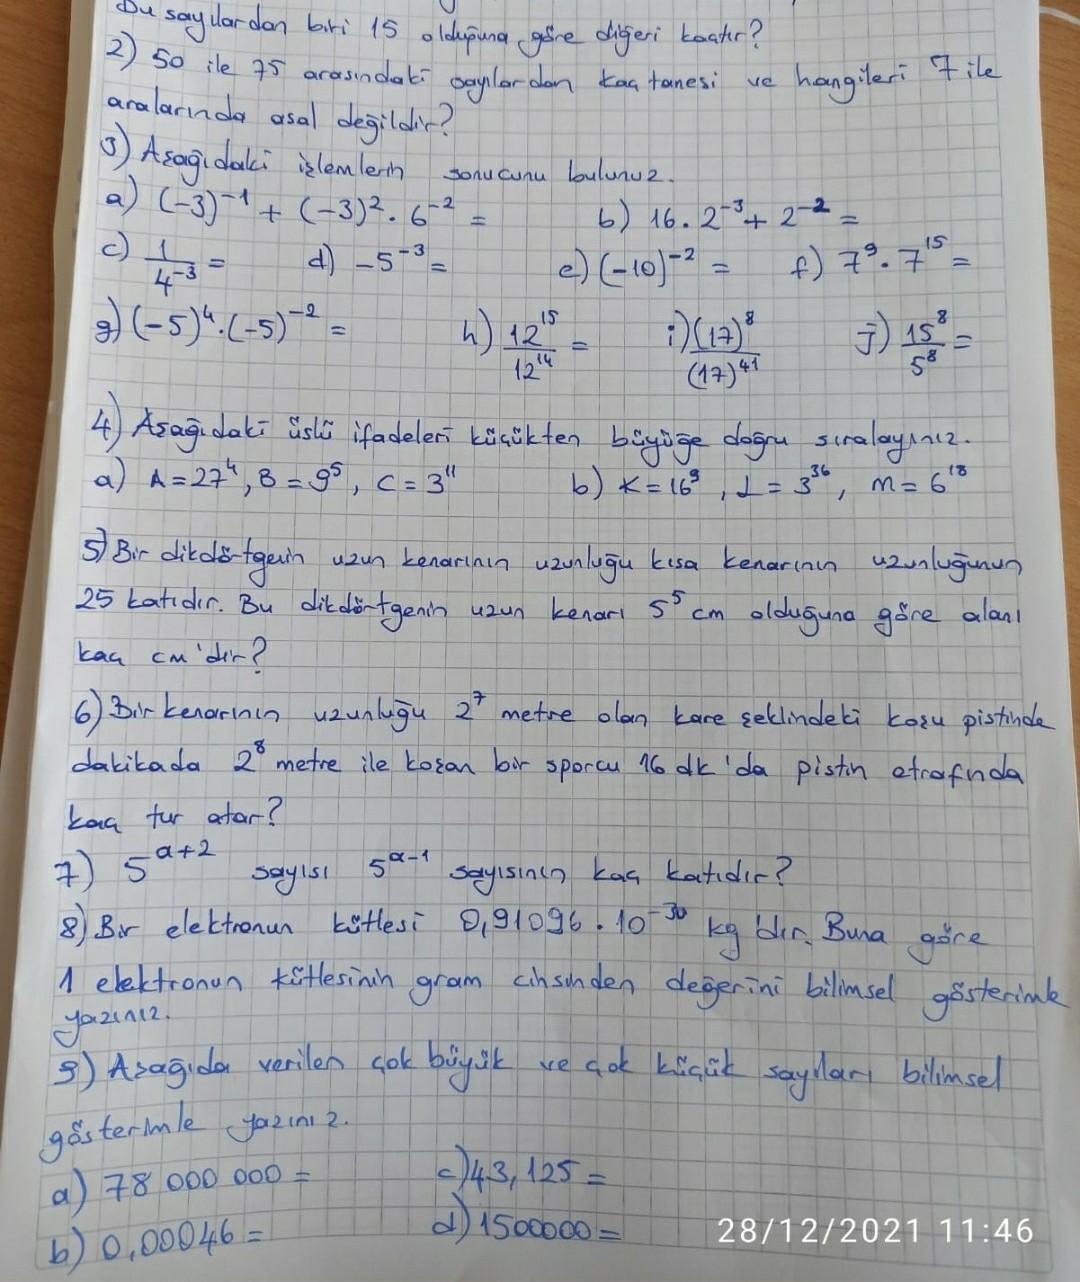 Bu sayılardan biri 15 olduğuna göre diğeri kaçtır?
2) 50 ile 75 arasındaki sayılardan kaç tanesi ve hangileri 7 ile
aralarında asal değildir?
3) Aşağıdaki işlemlerin sonucunu bulunuz.
a) (-3)⁻¹ + (-3)² . 6⁻² = b) 16 . 2⁻³ + 2⁻² =
c) 1/4⁻³ = d) -5⁻³ = e) (-10)⁻² = f) 7⁹ . 7¹⁵ =
g) (-5)⁴ . (-5)⁻² = h) 12¹⁵/12¹⁴ = i) (17)⁸/(17)⁴¹ j) 15⁸/5⁸ =
4) Aşağıdaki üslü ifadeleri küçükten büyüğe doğru sıralayınız.
a) A = 27⁴, B = 9⁵, C = 3¹¹ b) K = 16⁹, L = 3³⁶, M = 6¹⁸
5) Bir dikdörtgenin uzun kenarının uzunluğu kısa kenarının uzunluğunun
25 katıdır. Bu dikdörtgenin uzun kenarı 5⁵ cm olduğuna göre alanı
kaç cm'dir?
6) Bir kenarının uzunluğu 2⁷ metre olan kare şeklindeki koşu pistinde
dakikada 2⁸ metre ile koşan bir sporcu 16 dk'da pistin etrafında
kaç tur atar?
7) 5ᵃ⁺² sayısı 5ᵃ⁻¹ sayısının kaç katıdır?
8) Bir elektronun kütlesi 0,91096 . 10⁻³⁰ kg'dır. Buna göre
1 elektronun kütlesinin gram cinsinden değerini bilimsel gösterimle
yazınız.
9) Aşağıda verilen çok büyük ve çok küçük sayıları bilimsel
gösterimle yazınız.
a) 78 000 000 = c) 43,125 =
b) 0,00046 = d) 1500000 =
28/12/2021 11:46